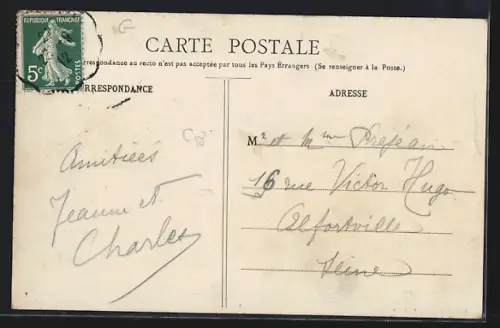 REPUBLIQUE FRANÇAISE
5c
POSTES
G
CARTE POSTALE
rrespondance au recto n'est pas acceptée par tous les Pays Étrangers (Se renseigner à la Poste.)
RRESPONDANCE
ADRESSE
Amitiées
Jeanne et
Charles
Mr et Mme
16 rue Victor Hugo
Alfortville
Seine